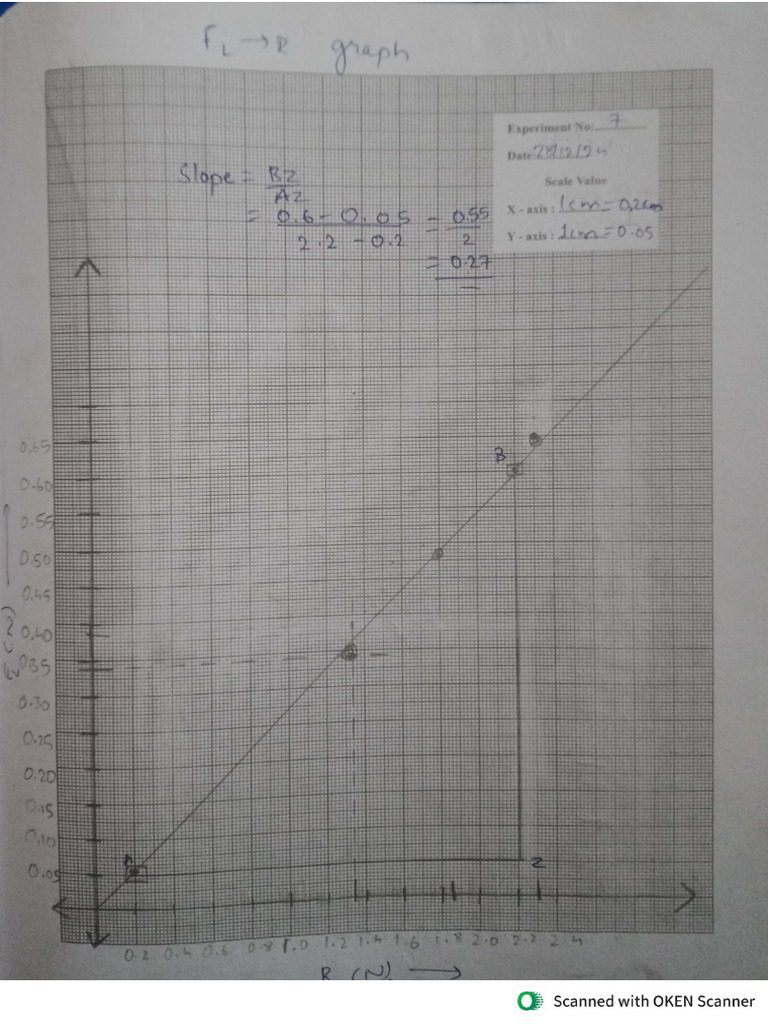 F_L → R graph
Experiment No: 7
Date: 28/12/24
Scale Value
X - axis : 1cm = 0.2cm
Y - axis : 1cm = 0.05
Slope = BZ / AZ
= 0.6 - 0.05 / 2.2 - 0.2 = 0.55 / 2
= 0.27
0.65
B
0.60
0.55
0.50
0.45
0.40
0.35
0.30
0.25
0.20
0.15
0.10
A
0.05
Z
0.2 0.4 0.6 0.8 1.0 1.2 1.4 1.6 1.8 2.0 2.2 2.4
R (N) →
Scanned with OKEN Scanner